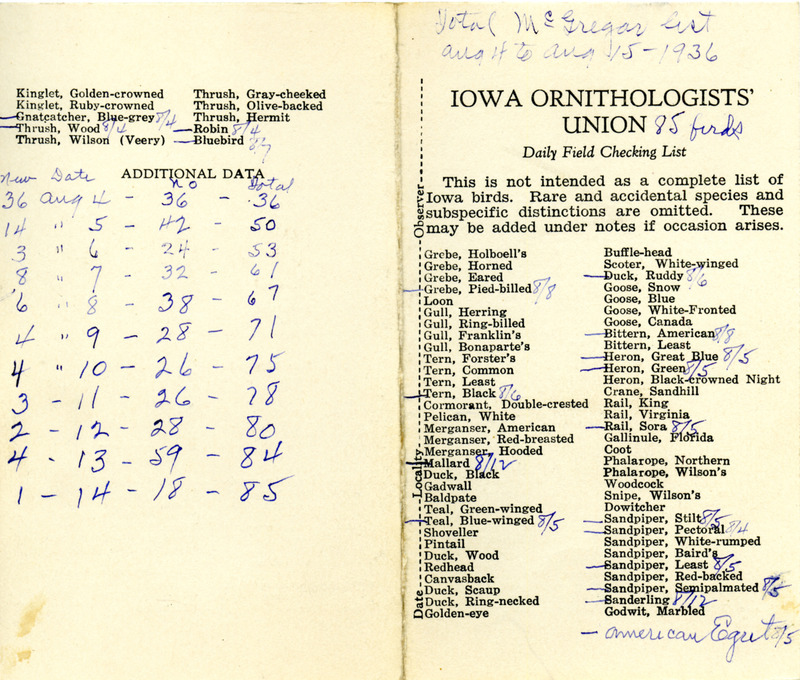 Kinglet, Golden-crowned
Kinglet, Ruby-crowned
Gnatcatcher, Blue-grey 8/4
Thrush, Wood 8/4
Thrush, Wilson (Veery)
Thrush, Gray-cheeked
Thrush, Olive-backed
Thrush, Hermit
Robin 8/4
Bluebird 8/7
ADDITIONAL DATA
New Date no Total
36 Aug 4 - 36 - 36
14 " 5 - 42 - 50
3 " 6 - 24 - 53
8 " 7 - 32 - 61
6 " 8 - 38 - 67
4 " 9 - 28 - 71
4 " 10 - 26 - 75
3 - 11 - 26 - 78
2 - 12 - 28 - 80
4 - 13 - 59 - 84
1 - 14 - 18 - 85
Total McGregor list
Aug 4 to Aug 15-1936
IOWA ORNITHOLOGISTS'
UNION 85 birds
Daily Field Checking List
This is not intended as a complete list of
Iowa birds. Rare and accidental species and
subspecific distinctions are omitted. These
may be added under notes if occasion arises.
Date Locality Observer
Grebe, Holboell's
Grebe, Horned
Grebe, Eared
Grebe, Pied-billed 8/8
Loon
Gull, Herring
Gull, Ring-billed
Gull, Franklin's
Gull, Bonaparte's
Tern, Forster's
Tern, Common
Tern, Least
Tern, Black 8/6
Cormorant, Double-crested
Pelican, White
Merganser, American
Merganser, Red-breasted
Merganser, Hooded
Mallard 8/12
Duck, Black
Gadwall
Baldpate
Teal, Green-winged
Teal, Blue-winged 8/5
Shoveller
Pintail
Duck, Wood
Redhead
Canvasback
Duck, Scaup
Duck, Ring-necked
Golden-eye
Buffle-head
Scoter, White-winged
Duck, Ruddy 8/6
Goose, Snow
Goose, Blue
Goose, White-Fronted
Goose, Canada
Bittern, American 8/8
Bittern, Least
Heron, Great Blue 8/5
Heron, Green 8/5
Heron, Black-crowned Night
Crane, Sandhill
Rail, King
Rail, Virginia
Rail, Sora 8/5
Gallinule, Florida
Coot
Phalarope, Northern
Phalarope, Wilson's
Woodcock
Snipe, Wilson's
Dowitcher
Sandpiper, Stilt 8/5
Sandpiper, Pectoral 8/4
Sandpiper, White-rumped
Sandpiper, Baird's
Sandpiper, Least 8/5
Sandpiper, Red-backed
Sandpiper, Semipalmated 8/5
Sanderling 8/12
Godwit, Marbled
- American Egret 8/5